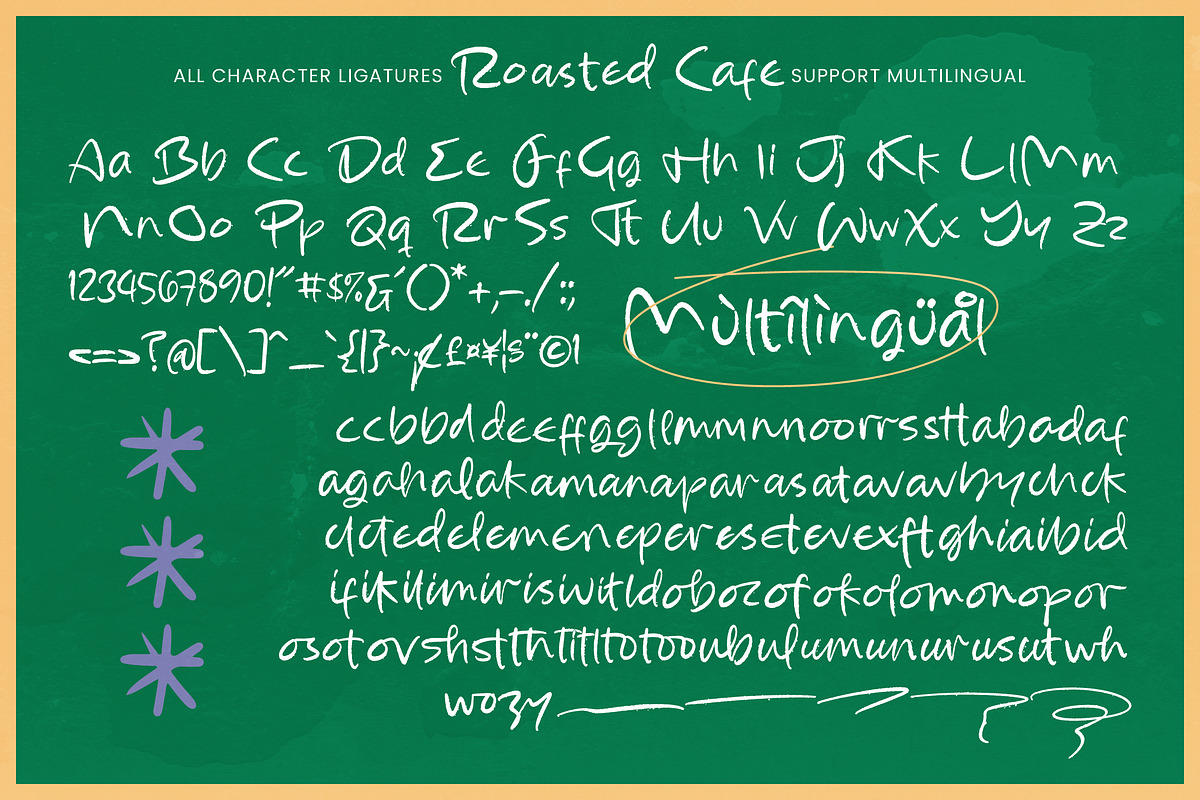 ALL CHARACTER LIGATURES Roasted Cafe SUPPORT MULTILINGUAL
Aa Bb Cc Dd Ee Ff Gg Hh Ii Jj Kk Ll Mm
Nn Oo Pp Qq Rr Ss Tt Uu Vv Ww Xx Yy Zz
1234567890!"#$%&´()*+,-./:;
<=>?@[\]^_`{|}~¡¢£¤¥¦§¨©ª
Mùltîlìngüål
ccbbddeeffggllmmnnoorrssttabadaf
agahalakamanaparasatavavbychck
clctedelemeneperesetevexftghiaibid
ifikilimirisivitldobozofokolomonopor
osotovshstthtitltotooubulumunurusutwh
wozy